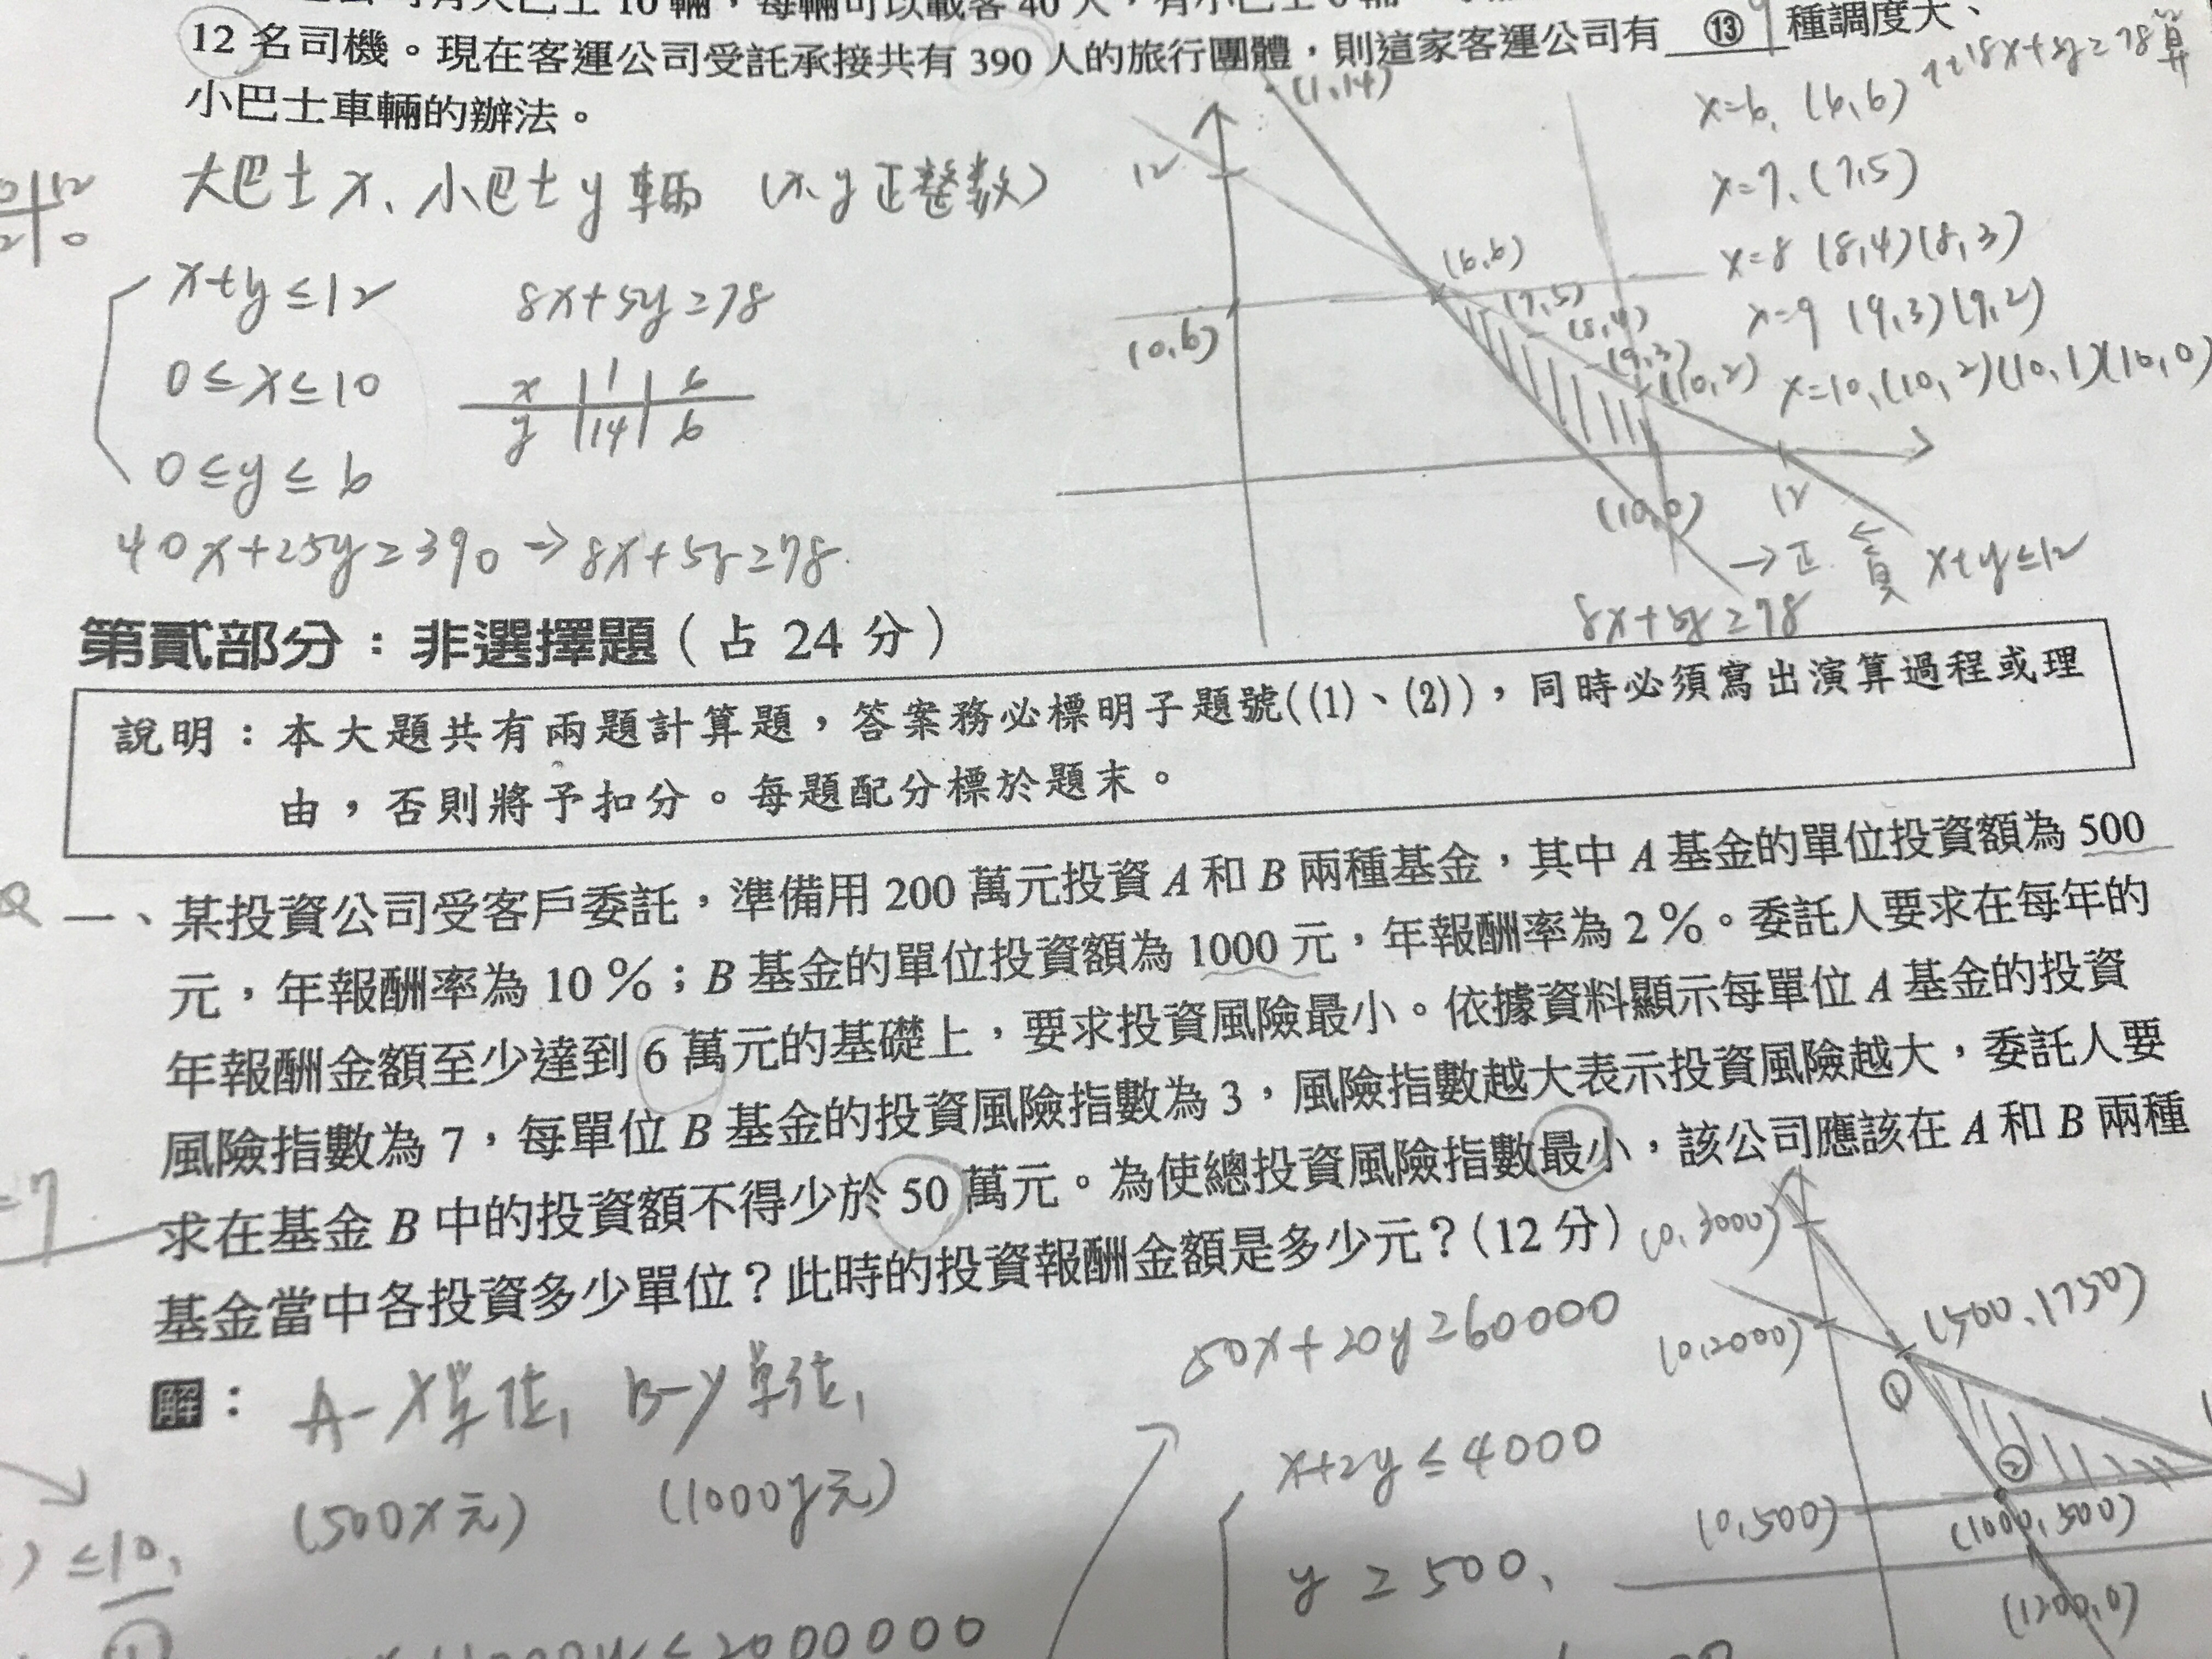 12 名司機。現在客運公司受託承接共有 390 人的旅行團體，則這家客運公司有 ⑬ 種調度大、
小巴士車輛的辦法。
大巴士 x、小巴士 y 輛 (x、y 正整数)
x+y≤12
0≤x≤10
0≤y≤6
8x+5y≥78
x 1 6
y 14 6
40x+25y≥390 → 8x+5y≥78.
(1,14)
12
(0,6)
(6,6)
(7,5)
(8,4)
(9,3)
(10,2)
(10,0)
12
→正
←負 x+y≤12
8x+5y≥78
8x+5y≥78算
x=6, (6,6)
x=7, (7,5)
x=8 (8,4)(8,3)
x=9 (9,3)(9,2)
x=10, (10,2)(10,1)(10,0)
第貳部分：非選擇題（占 24 分）
說明：本大題共有兩題計算題，答案務必標明子題號((1)、(2))，同時必須寫出演算過程或理
由，否則將予扣分。每題配分標於題末。
一、某投資公司受客戶委託，準備用 200 萬元投資 A 和 B 兩種基金，其中 A 基金的單位投資額為 500
元，年報酬率為 10％；B 基金的單位投資額為 1000 元，年報酬率為 2％。委託人要求在每年的
年報酬金額至少達到 6 萬元的基礎上，要求投資風險最小。依據資料顯示每單位 A 基金的投資
風險指數為 7，每單位 B 基金的投資風險指數為 3，風險指數越大表示投資風險越大，委託人要
求在基金 B 中的投資額不得少於 50 萬元。為使總投資風險指數最小，該公司應該在 A 和 B 兩種
基金當中各投資多少單位？此時的投資報酬金額是多少元？(12 分)
=7
解：A-x單位, B-y單位,
(500x元) (1000y元)
50x+20y≥60000
x+2y≤4000
y≥500,
(0,3000)
(0,2000)
(500,1750)
①
②
(0,500)
(1000,500)
(1200,0)
≤10,
≤2000000